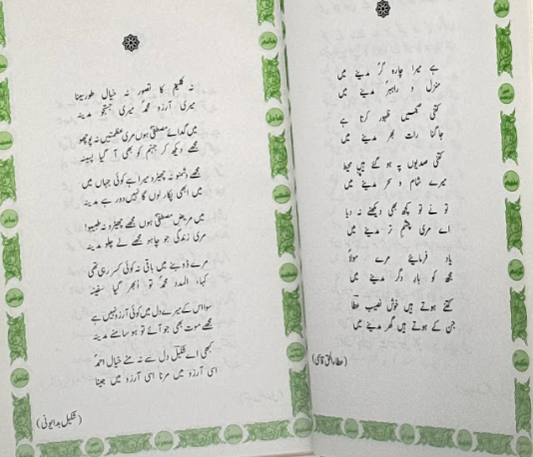 ہے میرا چارہ گر مدینے میں
منزل و راہبر مدینے میں
کتنی صبحیں ظہور کرتا ہے
جاگنا رات بھر مدینے میں
کتنی صدیوں پہ ہو گئے ہیں محیط
میرے شام و سحر مدینے میں
تو نے تو کچھ بھی دیکھنے نہ دیا
اے مری چشم تر مدینے میں
یاد فرمایئے مرے مولاؐ
مجھ کو بار دگر مدینے میں
کتنے ہوتے ہیں خوش نصیب عطاؔ
جن کے ہوتے ہیں گھر مدینے میں
(عطاء الحق قاسمی)
نہ کلیم کا تصور نہ خیال طور سینا
میری آرزو محمدؐ میری جستجو مدینہ
میں گدائے مصطفیؐ ہوں مری عظمتیں نہ پوچھو
مجھے دیکھ کر جہنم کو بھی آ گیا پسینہ
مجھے دشمنو نہ چھیڑو میرا ہے کوئی جہاں میں
میں ابھی پکار لوں گا نہیں دور ہے مدینہ
میں مریض مصطفیؐ ہوں مجھے چھیڑو نہ طبیبو!
مری زندگی جو چاہو مجھے لے چلو مدینہ
مرے ڈوبنے میں باقی نہ کوئی کسر رہی تھی
کہا، المدد محمدؐ تو ابھر گیا سفینہ
سوا اس کے میرے دل میں کوئی آرزو نہیں ہے
مجھے موت بھی جو آئے تو ہو سامنے مدینہ
کبھی اے شکیلؔ دل سے نہ مٹے خیال احمدؐ
اسی آرزو میں مرنا اسی آرزو میں جینا
(شکیل بدایونی)